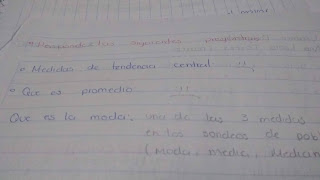 Responde las siguientes preguntas
• Medidas de tendencia central
• Que es promedio
Que es la moda: una de las 3 medidas
en los sondeos de
(Moda, media, Median